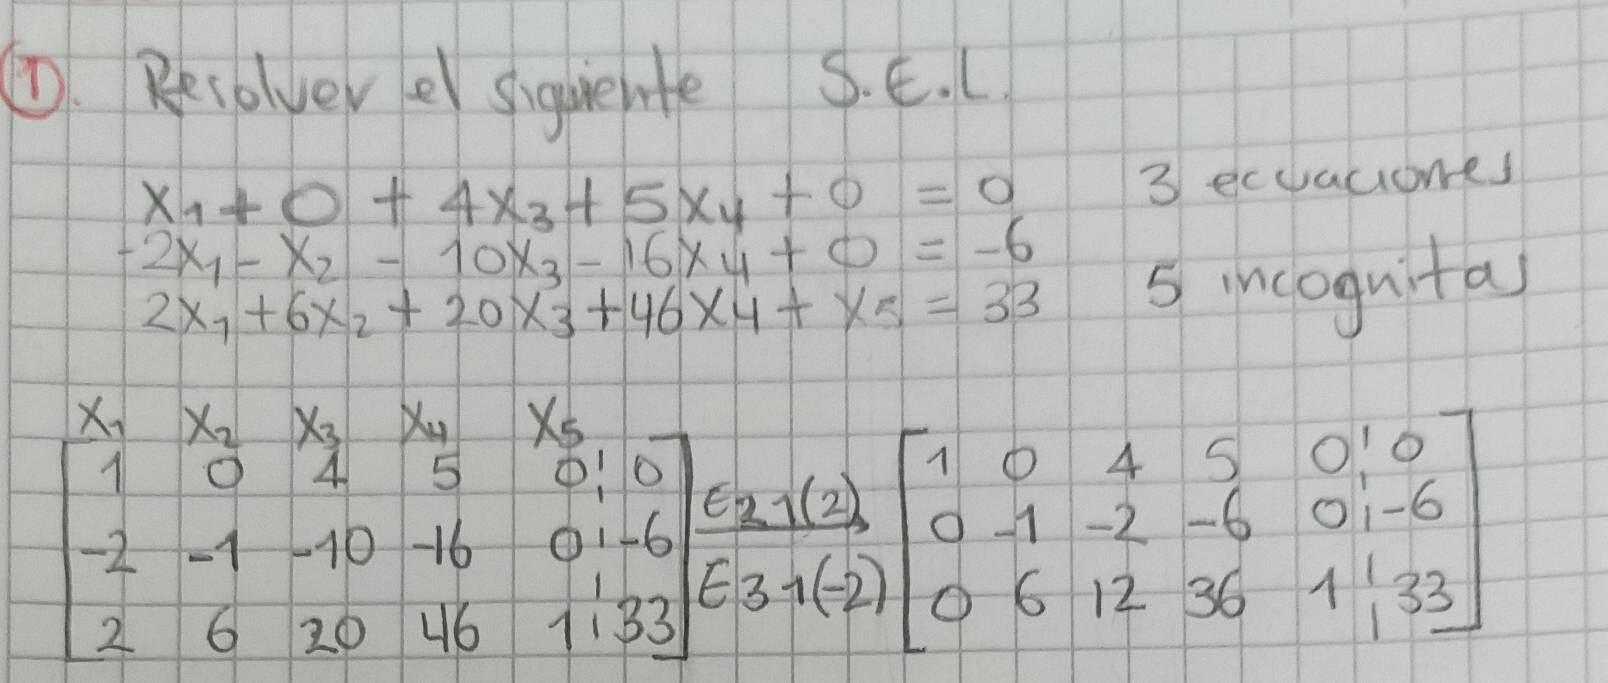 1. Resolver el siguiente S.E.L.
x₁ + 0 + 4x₃ + 5x₄ + 0 = 0 3 ecuaciones
-2x₁ - x₂ - 10x₃ - 16x₄ + 0 = -6
2x₁ + 6x₂ + 20x₃ + 46x₄ + x₅ = 33 5 incognitas
x₁ x₂ x₃ x₄ x₅
1 0 4 5 0 ¦ 0 1 0 4 5 0 ¦ 0
-2 -1 -10 -16 0 ¦ -6 E21(2) 0 -1 -2 -6 0 ¦ -6
2 6 20 46 1 ¦ 33 E31(-2) 0 6 12 36 1 ¦ 33